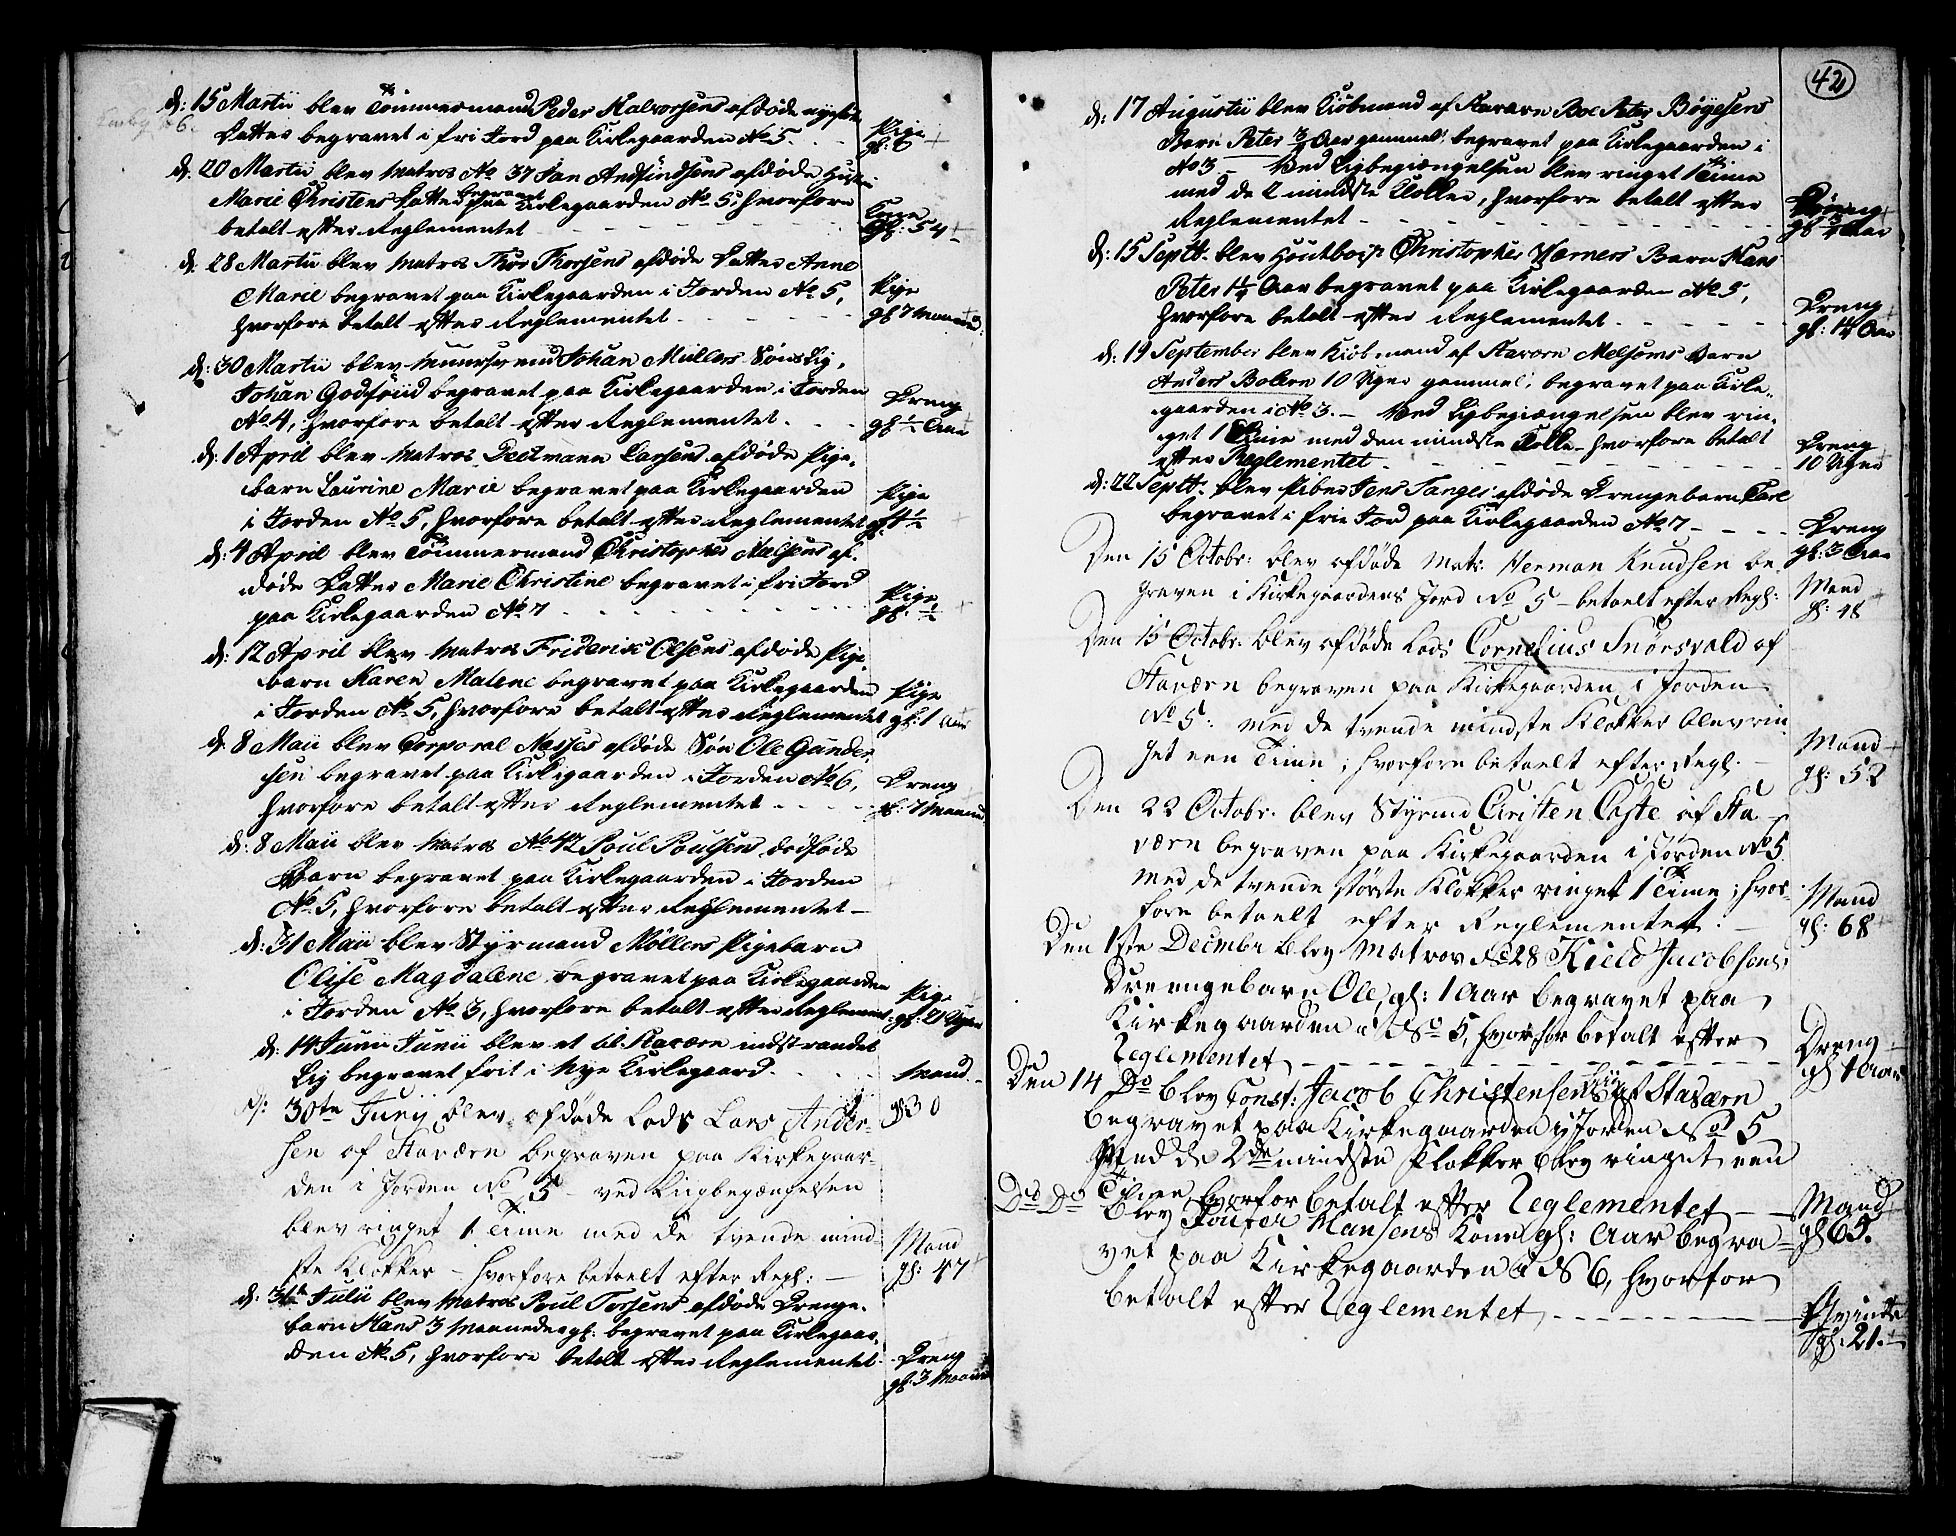 d: 15 Martii blev Tömmermand Peder Halvorsens afdöde
Datter begravet i fri Jord paa Kirkegaarden No 5. Pige
d: 20 Martii blev Matros No 37 Jan Andfindsens afdöde Hustru
Marie Christens Datter begravet paa Kirkegaarden No 5, hvorfore
betalt efter Reglementet Kone gl: 54
d: 28 Martii blev Matros Thor Thorsens afdöde Datter Anne
Marie begravet paa Kirkegaarden i Jorden No 5,
hvorfore betalt efter Reglementet Pige gl 7 Maaned:
d: 30 Martii blev Johan Müllers Söns Lig,
Johan Godfriid begravet paa Kirkegaarden i Jorden
No 4, hvorfore betalt efter Reglementet. Dreng gl ½ Aar
d: 1 April blev Matros Deetmann Larsens afdöde Pige-
barn Laurine Marie begravet paa Kirkegaarden
i Jorden No 5, hvorfore betalt efter Reglementet Pige
d: 4 April blev Tömmermand Christopher Nielsens af-
döde Datter Marie Christine begravet i fri Jord
paa Kirkegaarden No 7 Pige gl: ½
d: 12 April blev Matros Friderik Olsens afdöde Pige-
barn Karen Malene begravet paa Kirkegaarden
i Jorden No 5, hvorfore betalt efter Reglementet Pige gl: 1 Aar
d: 8 Maii blev Corporal Næsses afdöde Sön Ole Gunder-
sen begravet paa Kirkegaarden i Jorden No 6,
hvorfore betalt efter Reglementet Dreng gl: 7 Maaned
d: 8 Maii blev Matros No 42 Poul Poulsens dödföde
Barn begravet paa Kirkegaarden i Jorden
No 5, hvorfore betalt efter Reglementet
d: 31 Maii blev Styrmand Möllers Pigebarn
Elise Magdalene begravet paa Kirkegaarden
i Jorden No 3, hvorfore betalt efter Reglement: Pige gl: 21 Uger
d: 14 Junii Junii blev et til Staværn indstrandet
Lig begravet frit i Nye Kirkegaard. Mand
d: 30te Junij blev afdöde Lods Lars Ander- gl 30
sen af Staværn begraven paa Kirkegaar-
den i Jorden No 5 - ved Liigbegængelsen
blev ringet 1 Time med de tvende mind-
ste Klokker - hvorfore betaelt efter Regl: Mand gl: 47
d: 31te Julii blev Matros Poul Torsens afdöde Drenge-
barn Hans 3 Maaneder gl: begravet paa Kirkegaar-
den No 5, hvorfore betalt efter Reglementet. Dreng gl: 3 Maaned
42
d: 17 Augustii blev Kiöbmand af Staværn Boe Peter Böyesens
Barn Peter ¾ Aar gammel, begravet paa Kirkegaarden i
No 3 - Ved Ligbegiængelsen blev ringet 1 Time
med de 2 mindste Klokker, hvorfore betalt efter
Reglementet Dreng gl ¾ Aar
d: 15 Septbr: blev Houtboist Christopher Værners Barn Hans
Peter 1¼ Aar begravet paa Kirkegaarden No 5,
hvorfore betalt efter Reglementet Dreng gl: 1¼ Aar
d: 19 September blev Kiöbmand af Staværn Melsoms Barn
Anders Bolern 10 Uger gammel, begravet paa Kirke-
gaarden i No 3. - Ved Ligbegiængelsen blev rin-
get 1 Time med den mindste Klokke hvorfore betalt
efter Reglementet Dreng 10 Uger
d: 22 Septbr: blev Piber Jens Tanges afdöde Drengebarn Carl
begravet i frie Jord paa Kirkegaarden No 7 Dreng gl: 3 Aar
Den 15 Octobr: blev afdöde Matr: Herman Knudsen be-
graven i Kirkegaardens Jord No 5 - betaelt efter Regl: Mand gl: 48
Den 15 Octobr: blev afdöde Lods Cornelius Snörsvald af
Staværn begraven paa Kirkegaarden i Jorden
No 5: med de tvende mindste Klokker blev rin-
get een Time; hvorfore betaelt efter Regl. Mand gl: 52
Den 22 Octobr: blev Styrmd Christen Coste af Sta-
værn begraven paa Kirkegaarden i Jorden No 5.
med de tvende störste Klokker ringet 1 Time; hvor-
fore betaelt efter Reglementet. Mand gl: 68
Den 1ste Decmbr blev Matros No 28 Kield Jacobsens
Drengebarn Ole, gl: 1 Aar begravet paa
Kirkegaarden i No 5, hvorfor betalt efter
Reglementet Dreng gl 1 Aar
Den 14 Do blev Const: Jacob Christensen af Staværn
begravet paa Kirkegaarden i Jorden No 5
Med de 2de mindste Klokker blev ringet een
Time, hvorfor betalt efter Reglementet Mand gl 65.
Do Do blev Fourer Hansens Kone gl: Aar begra-
vet paa Kirkegaarden i No 6, hvorfor
betalt efter Reglementet Qvinde gl: 21.